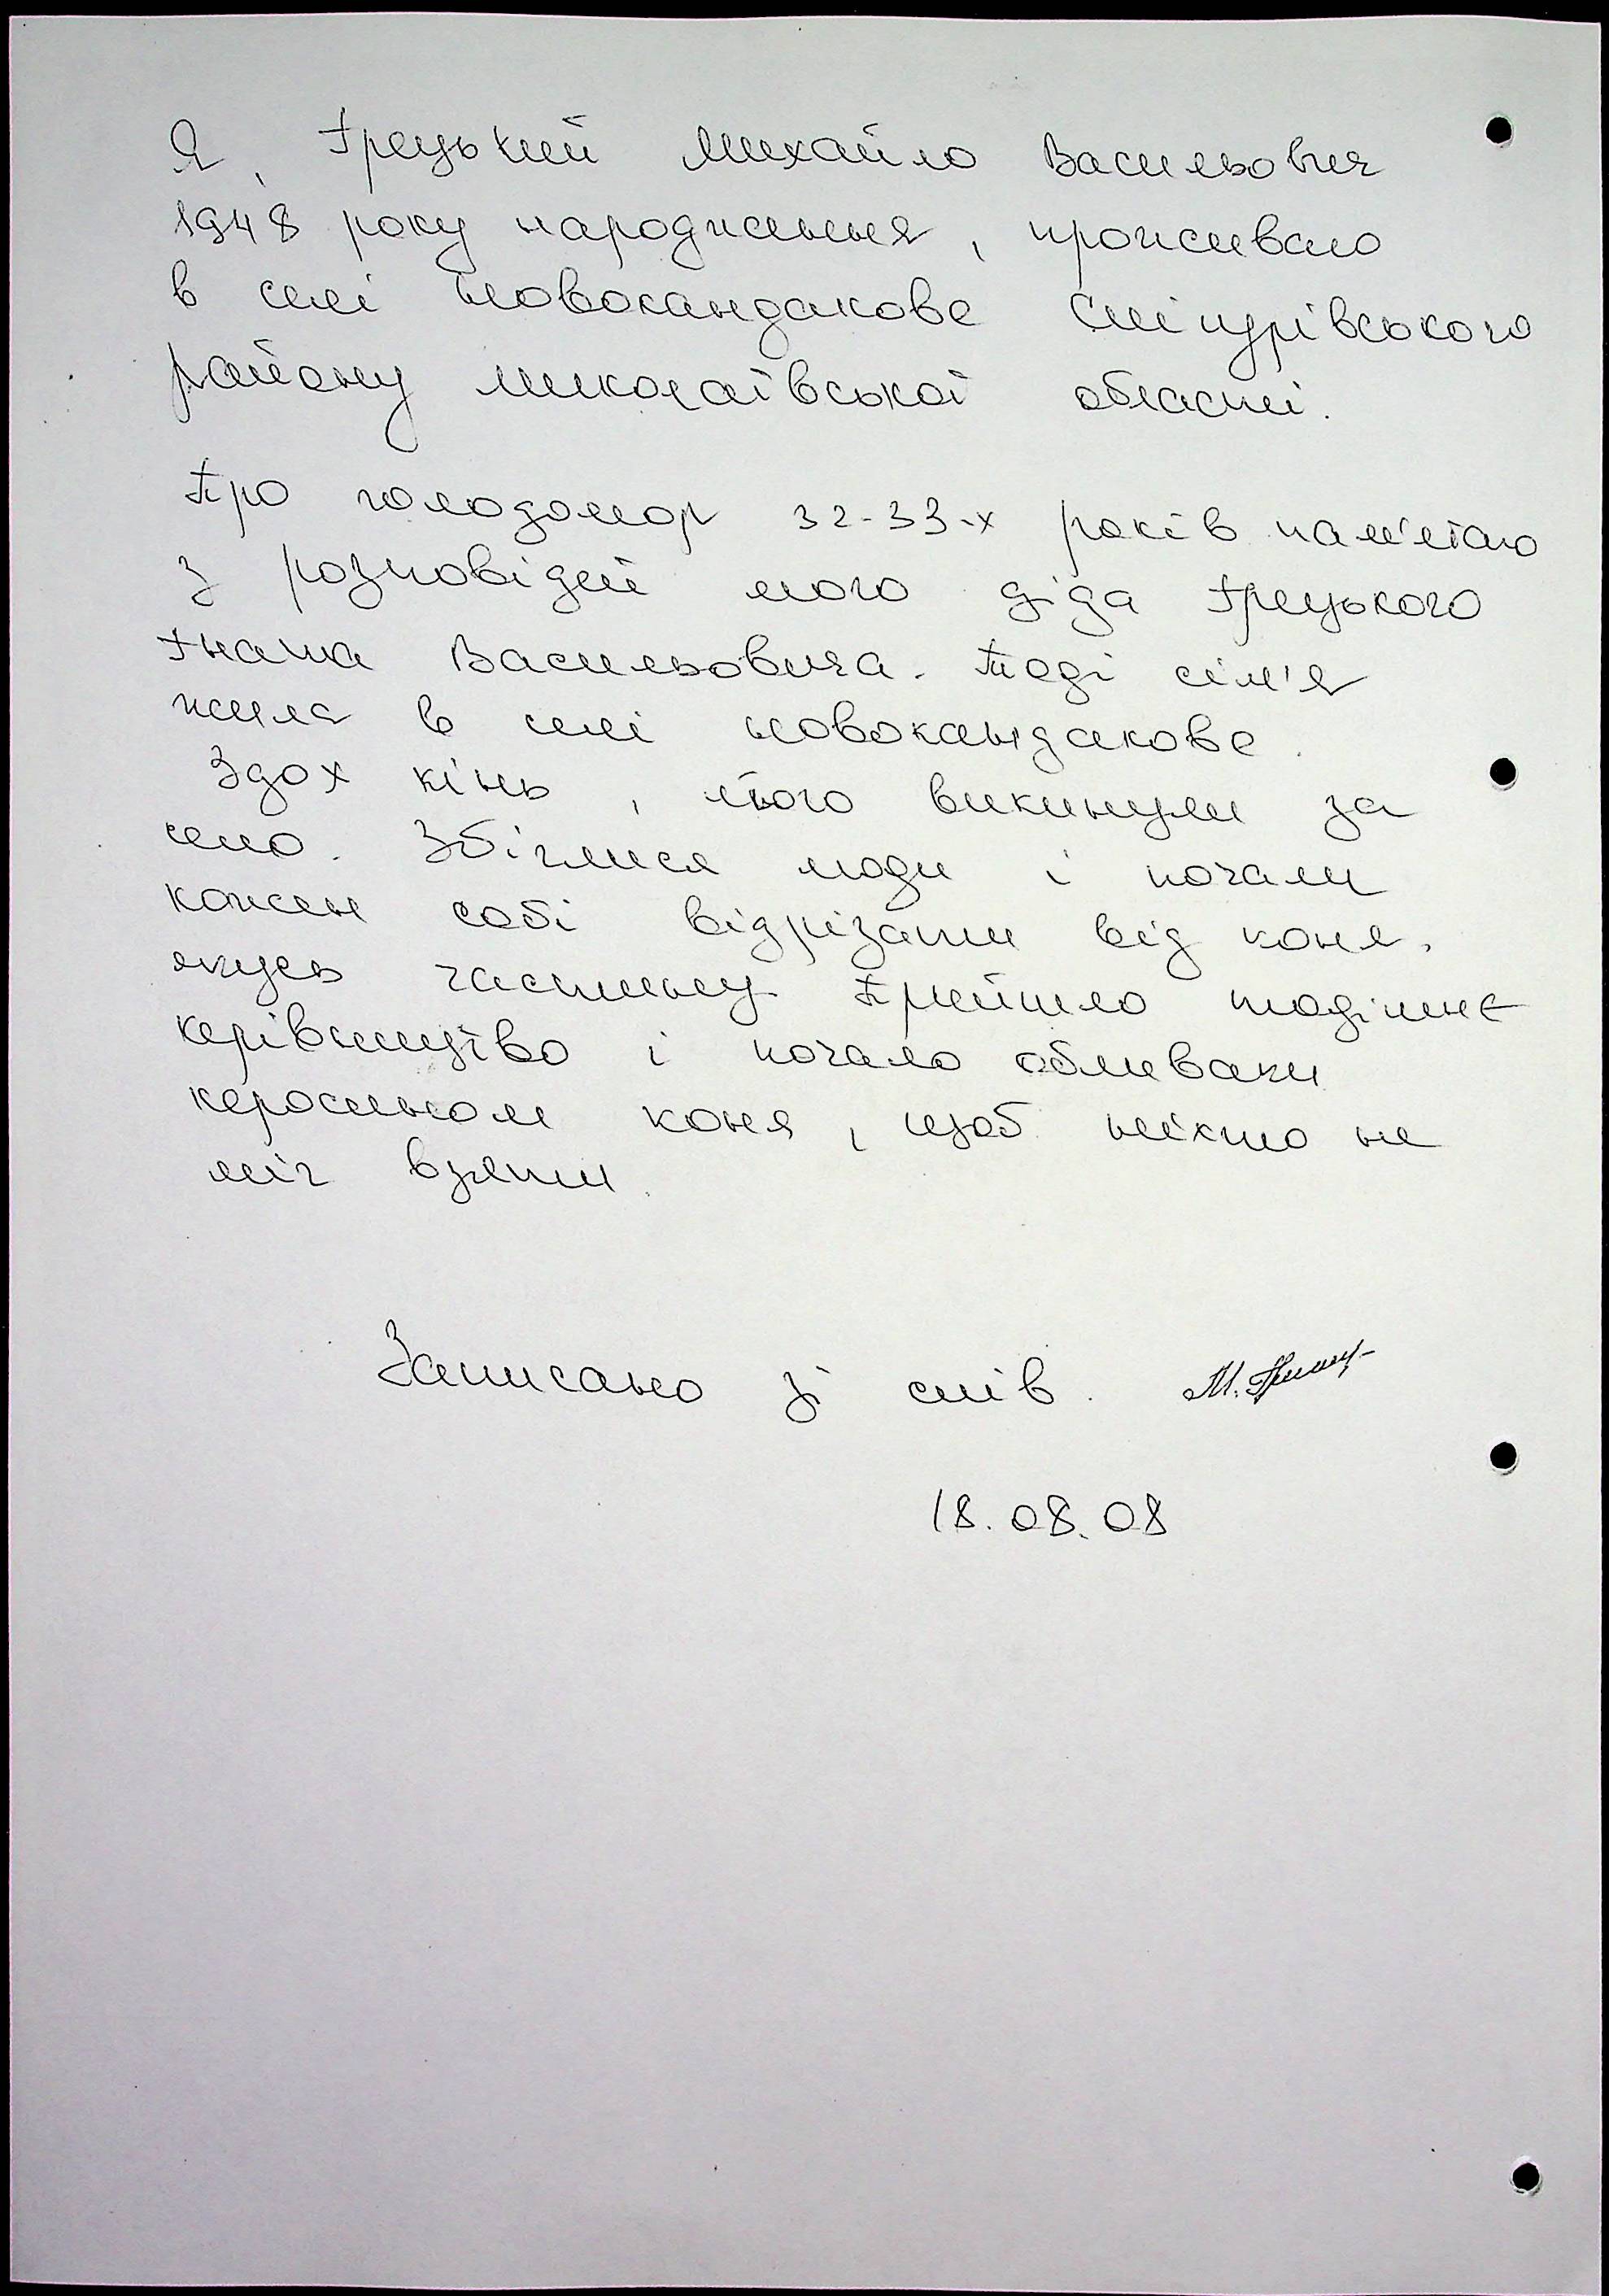 Я, Грецький Михайло Васильович
1948 року народження, проживаю
в селі Новокандакове Снігурівського
району Миколаївської області.
Про голодомор 32-33-х років пам'ятаю
з розповідей мого діда Грецького
Гната Васильовича. Тоді сім'я
жила в селі Новокандакове.
Здох кінь, його викинули за
село. Збіглися люди і почали
кожен собі відрізати від коня,
якусь частину. Прийшло тодішнє
керівництво і почало обливати
керосином коня, щоб ніхто не
міг взяти.
Записано зі слів. М.
18.08.08